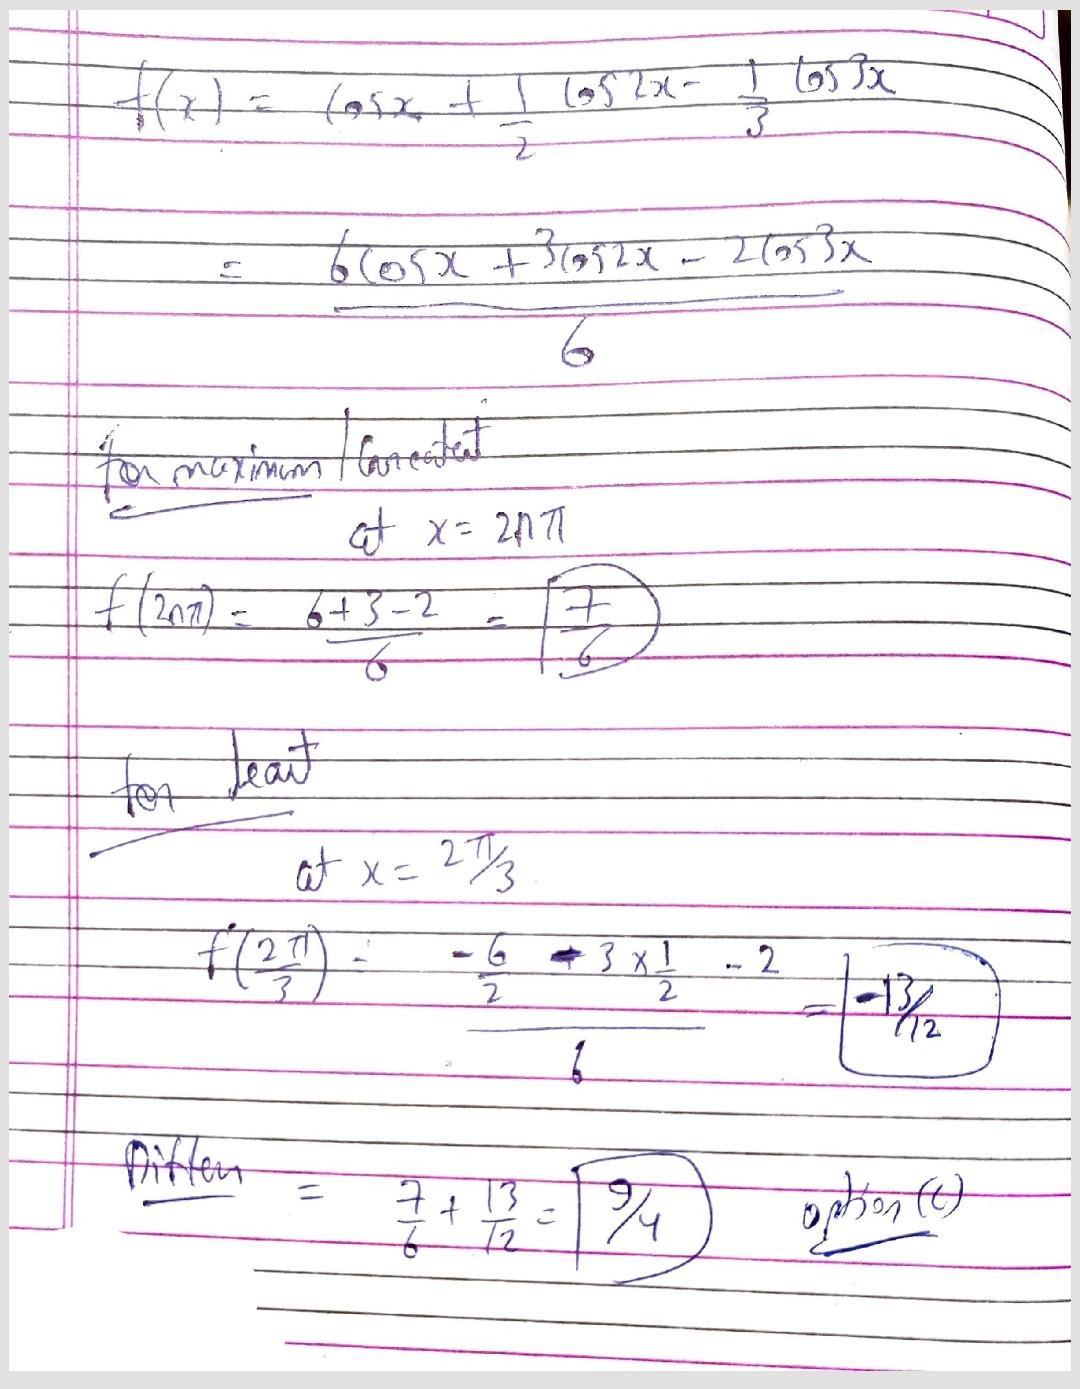 f(x) = cosx + 1/2 cos2x - 1/3 cos3x
= 6cosx + 3cos2x - 2cos3x / 6
for maximum / Greatest
at x = 2nπ
f(2nπ) = 6+3-2 / 6 = 7/6
for least
at x = 2π/3
f(2π/3) = -6/2 - 3 x 1/2 - 2 / 6 = -13/12
Differ
= 7/6 + 13/12 = 9/4 option (c)